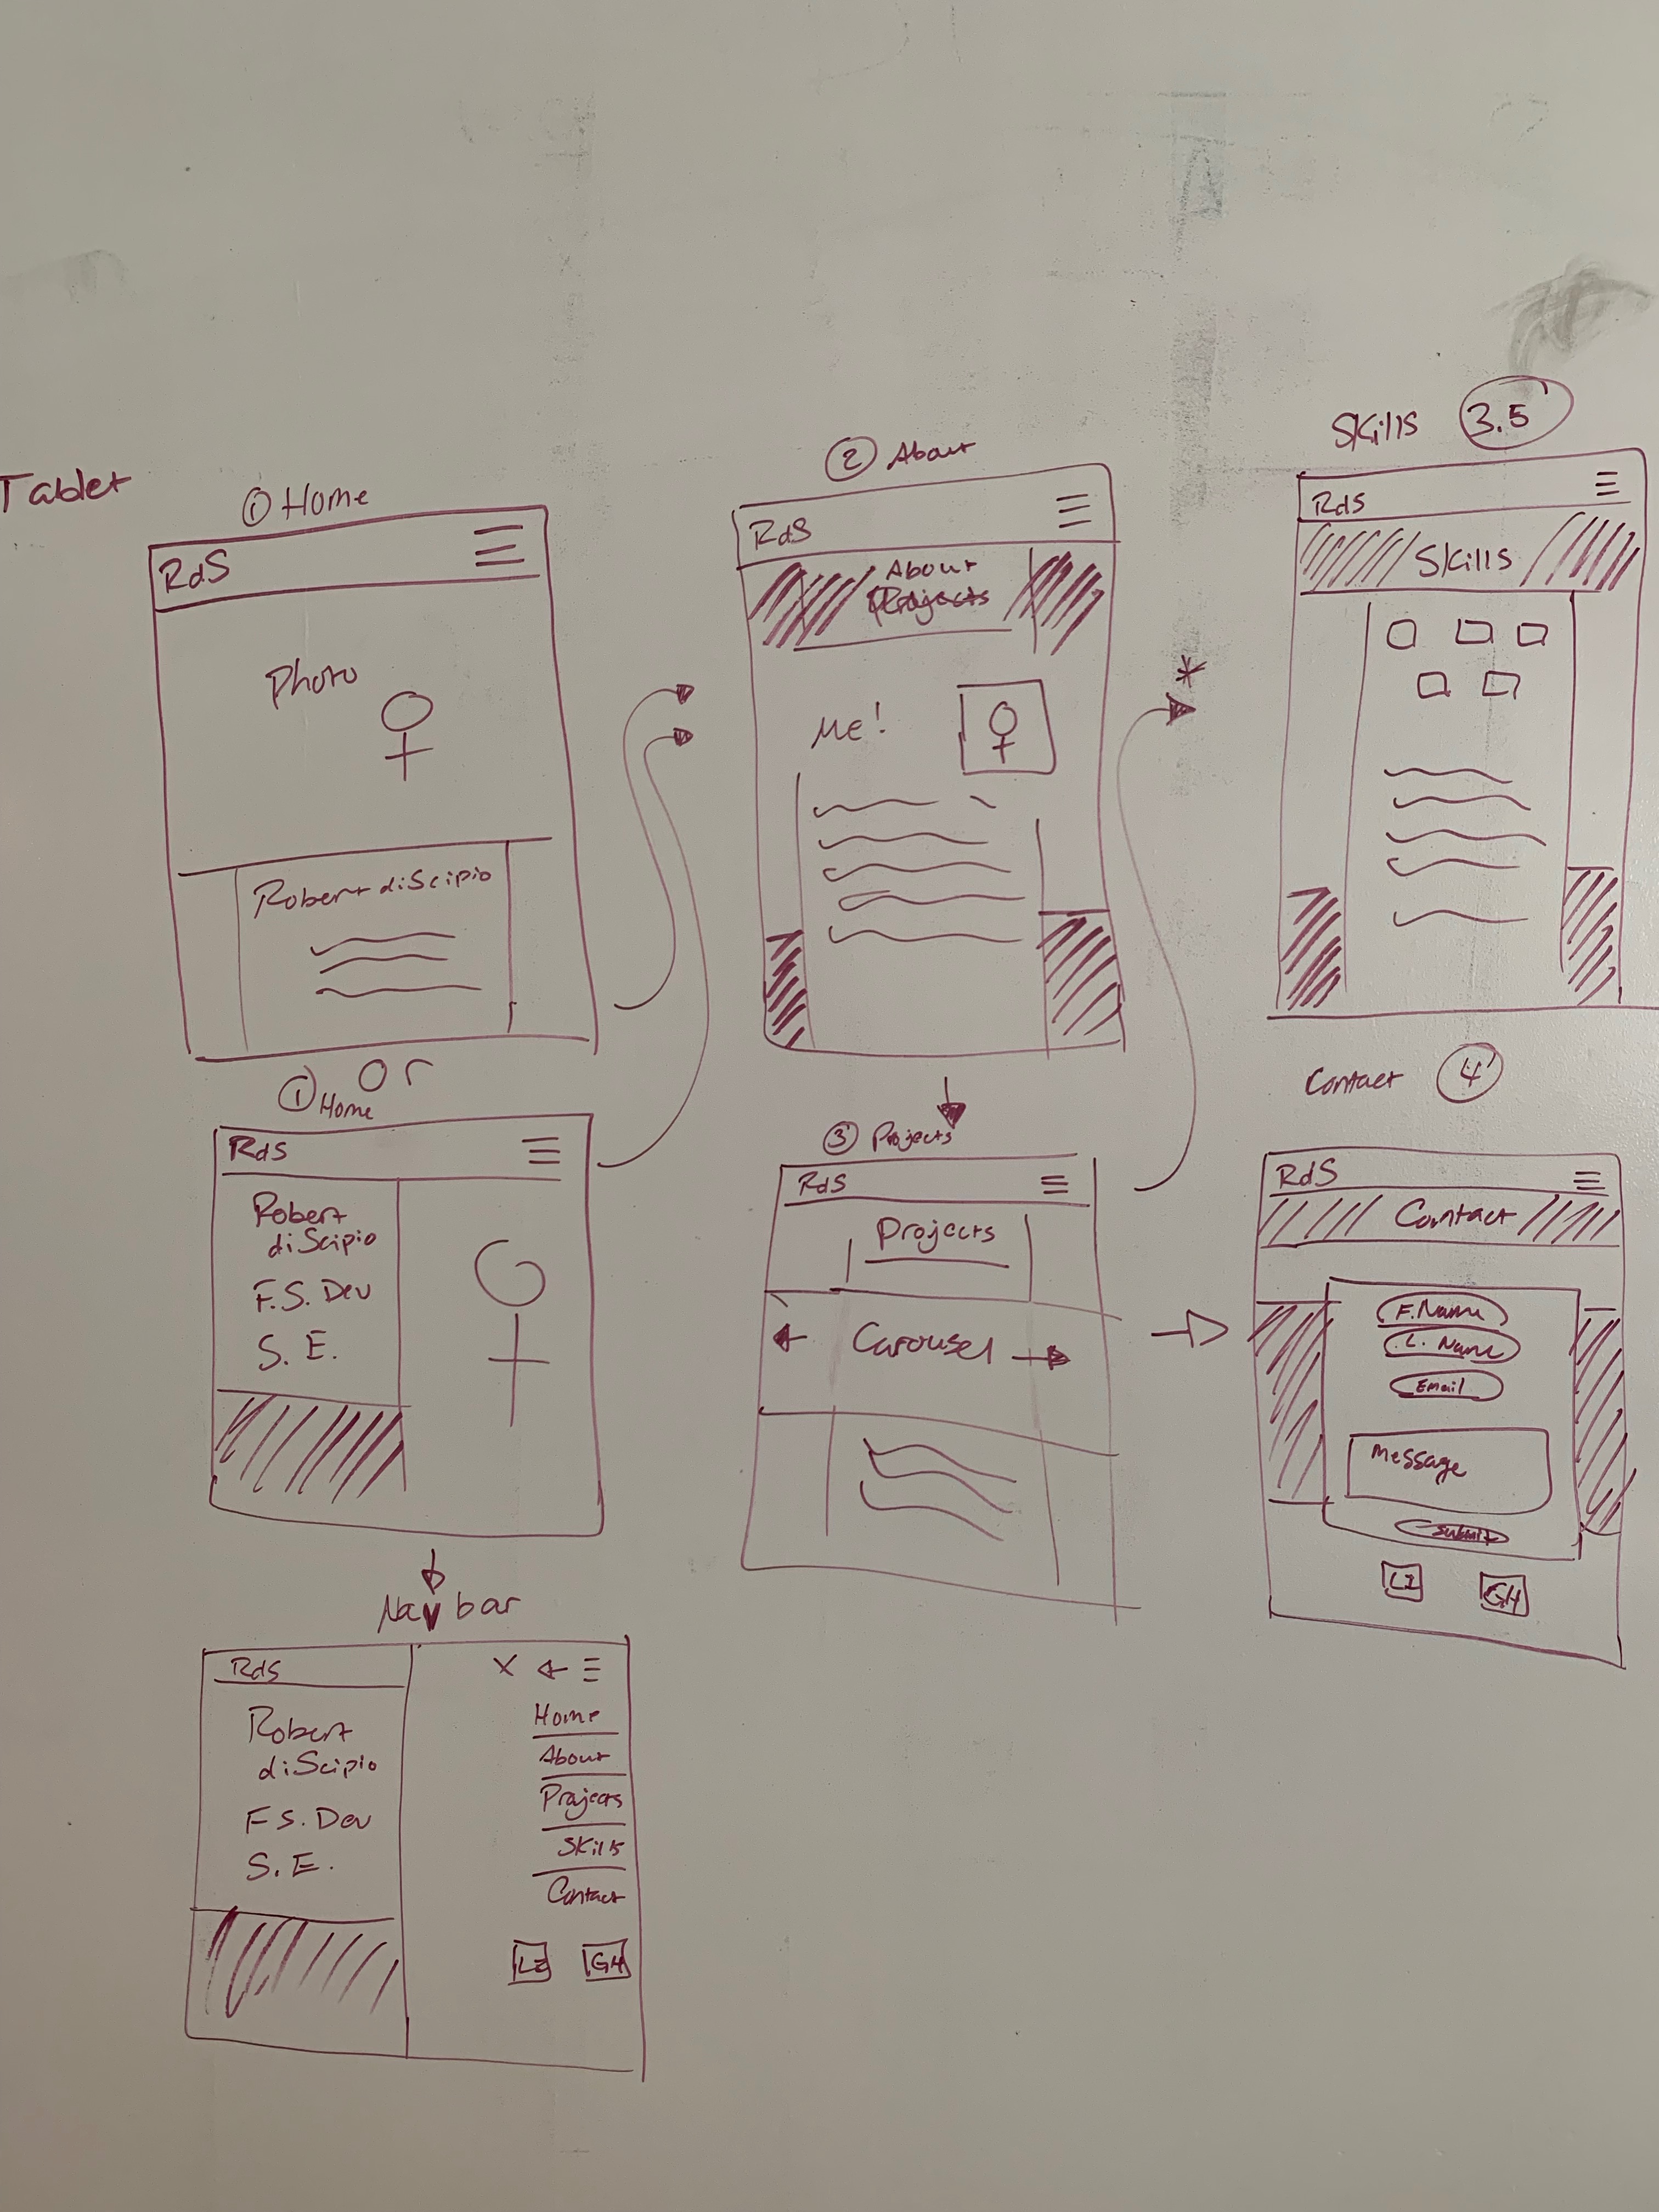 Tablet
① Home
RdS
Photo
Robert diScipio
or
① Home
RdS
Robert
diScipio
F.S. Dev
S. E.
Nav bar
RdS
X
Robert
diScipio
F S. Dev
S. E.
Home
About
Projects
Skills
Contact
LI
GH
② About
RdS
About
Projects
ME!
③ Projects
RdS
Projects
Carousel
*
Skills 3.5
RdS
Skills
Contact 4
RdS
Contact
F. Name
L. Name
Email
Message
Submit
LI
GH